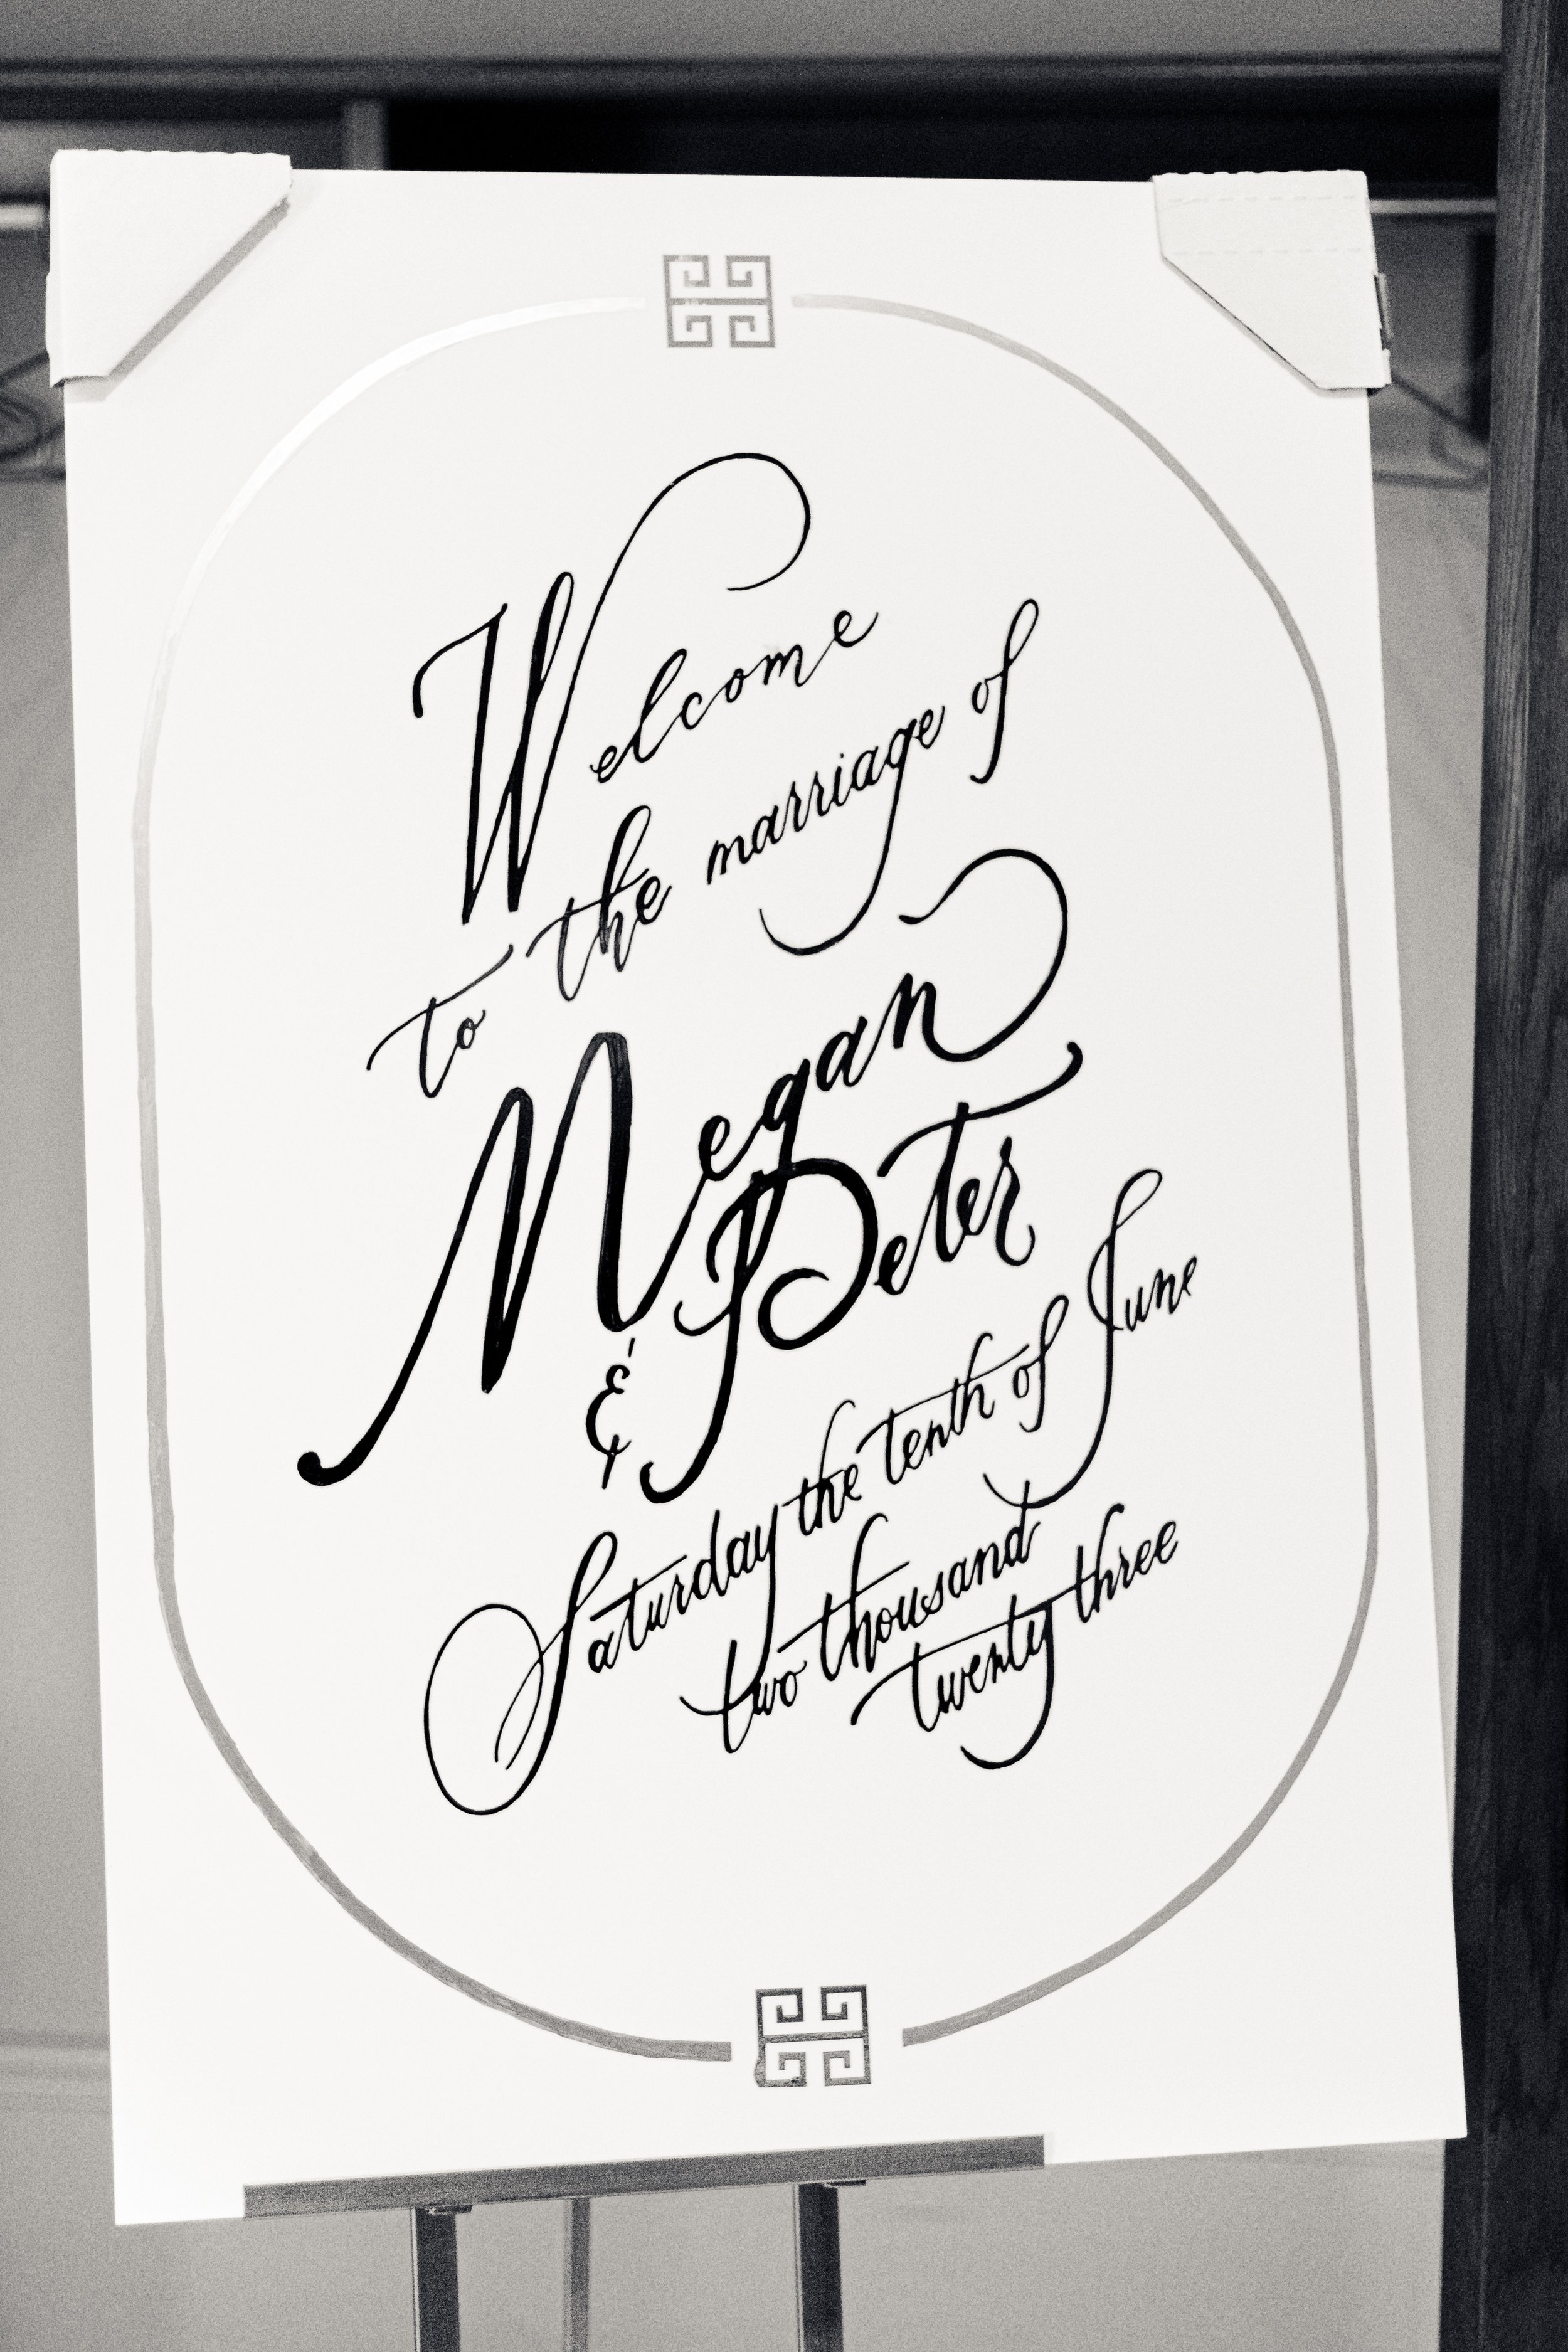 Welcome
to the marriage of
Megan
& Peter
Saturday the tenth of June
two thousand
twenty three